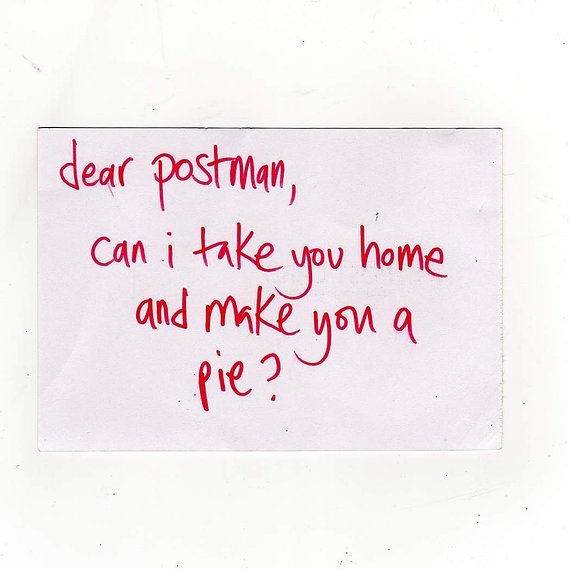 dear postman,
can i take you home
and make you a
pie?